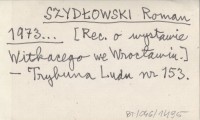 SZYDŁOWSKI Roman
1973... [Rec. o wystawie
Witkacego we Wrocławiu.]
– Trybuna Ludu nr 153.